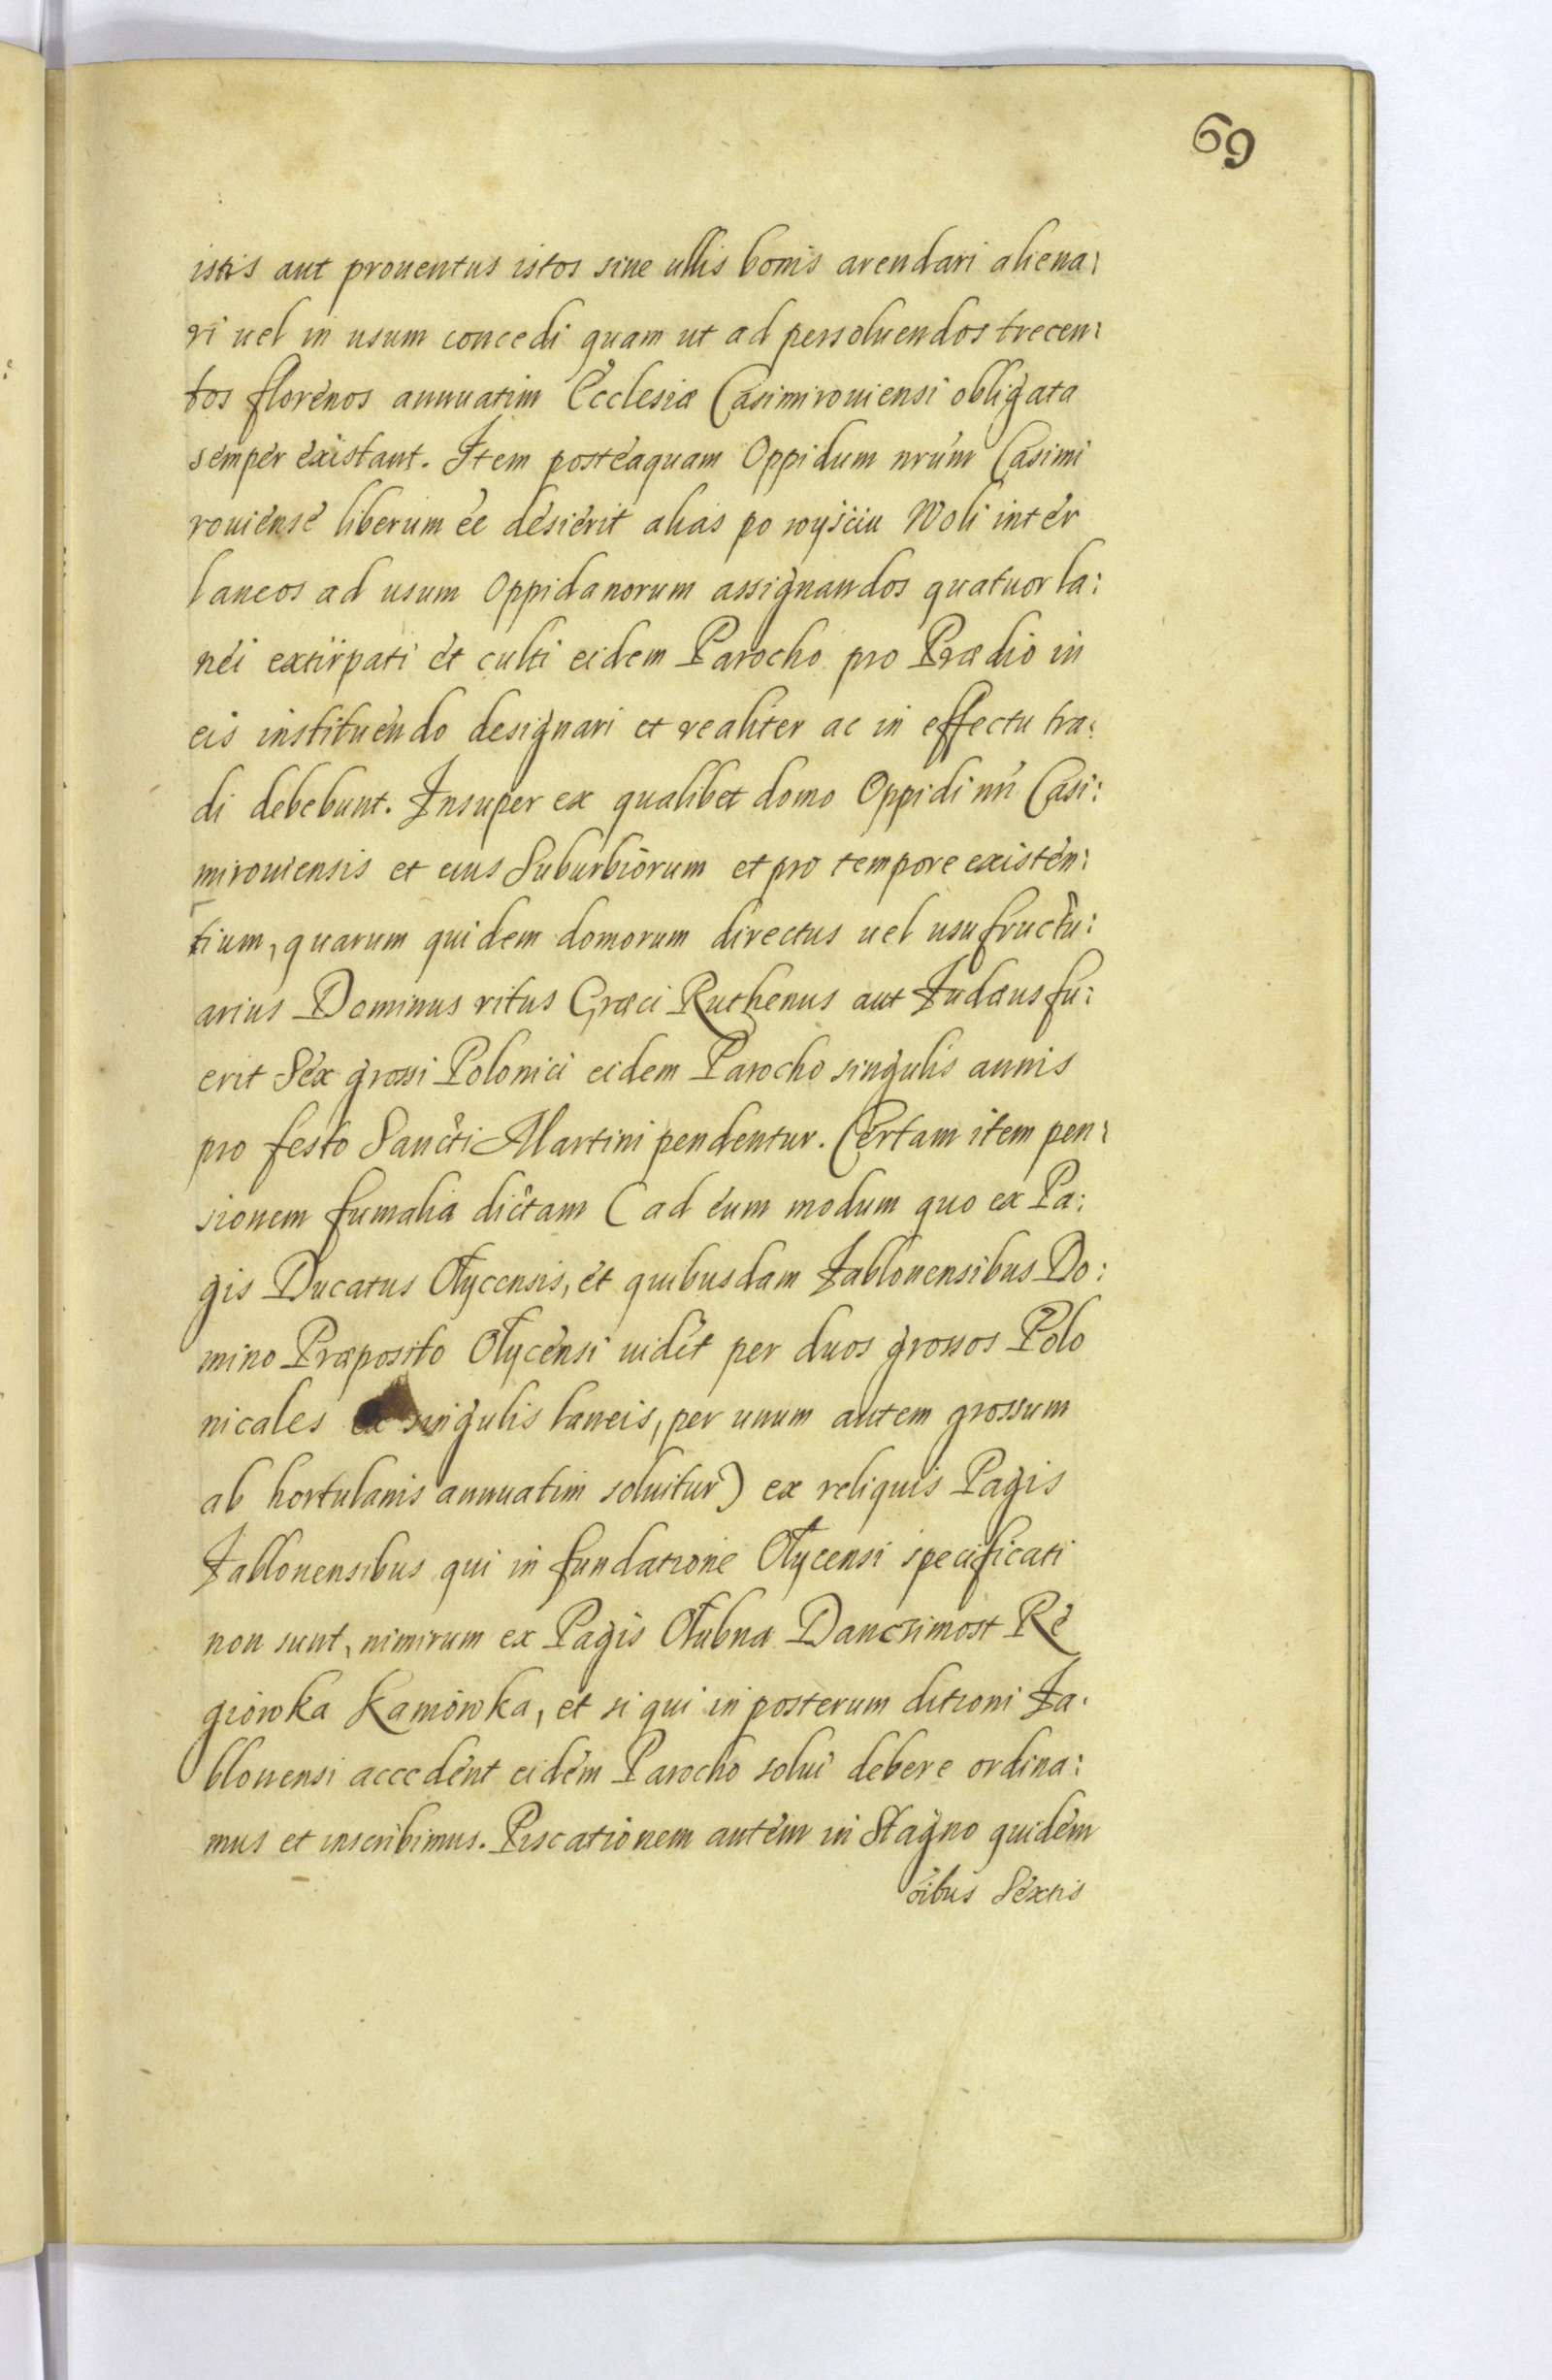 69
istis aut prouentus istos sine ullis bonis arendari aliena:
ri uel in usum concedi quam ut ad persoluendos trecen:
tos florenos annuatim Ecclesiæ Casimirouiensi obligata
semper existant. Item posteaquam Oppidum nrum Casimi
rouiense liberum ee desierit alias po wyściu Woli inter
laneos ad usum Oppidanorum assignandos quatuor la:
nei extirpati et culti eidem Parocho pro Prædio in
eis instituendo designari et realiter ac in effectu tra:
di debebunt. Insuper ex qualibet domo Oppidi nri Casi:
mirouiensis et eius Suburbiorum et pro tempore existen:
tium, quarum quidem domorum directus uel usufructu:
arius Dominus ritus Græci Ruthenus aut Iudæus fu:
erit Sex grossi Polonici eidem Parocho singulis annis
pro festo Sancti Martini pendentur. Certam item pen:
sionem fumalia dictam (ad eum modum quo ex Pa:
gis Ducatus Olycensis, et quibusdam Iablonensibus Do:
mino Præposito Olycensi uidet per duos grossos Polo
nicales ex singulis laneis, per unum autem grossum
ab hortulanis annuatim soluitur) ex reliquis Pagis
Iablonensibus qui in fundatione Olycensi specificati
non sunt, nimirum ex Pagis Ołubna Danczimost Re
giowka Kamowka, et si qui in posterum ditioni Ia:
blonensi accedent eidem Parocho solui debere ordina:
mus et inscribimus. Piscationem autem in Stagno quidem
oibus Sextis